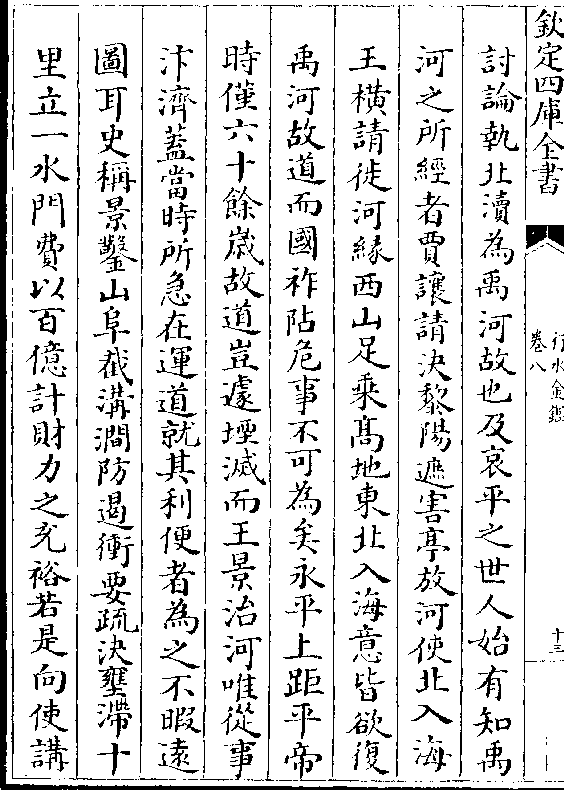 欽定四庫全書
行水金鑑
卷八
十三
討論執北瀆為禹河故也及哀平之世人始有知禹
河之所經者賈讓請決黎陽遮害亭放河使北入海
王橫請徙河緣西山足乘髙地東北入海意皆欲復
禹河故道而國祚阽危事不可為矣永平上距平帝
時僅六十餘嵗故道豈遽堙滅而王景治河唯從事
汴濟蓋當時所急在運道就其利便者為之不暇遠
圖耳史稱景鑿山阜截溝澗防遏衝要疏決壅滯十
里立一水門費以百億計財力之充裕若是向使講